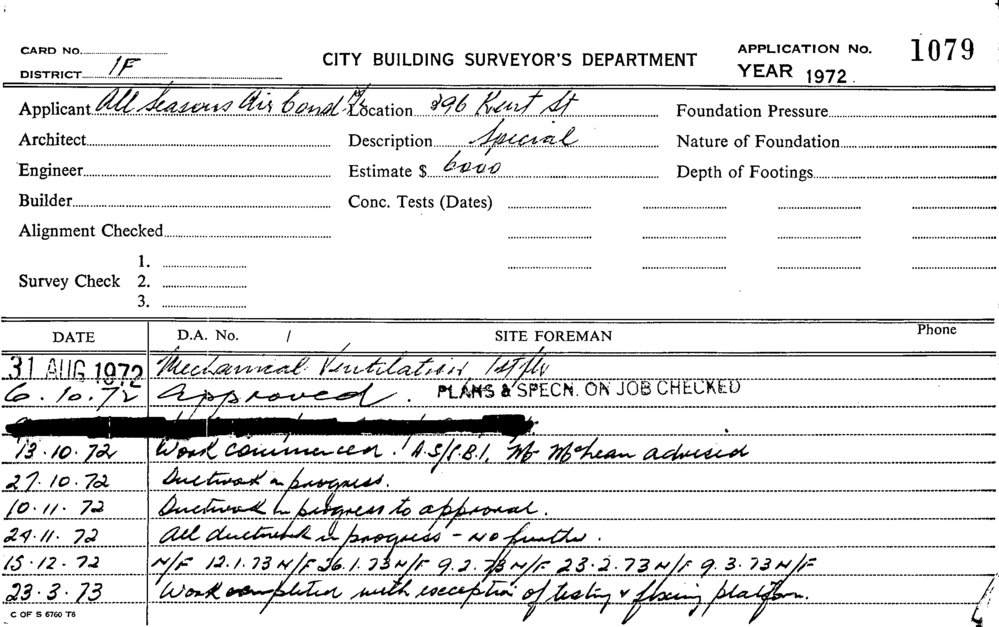 CARD No.
DISTRICT 1F
CITY BUILDING SURVEYOR'S DEPARTMENT
APPLICATION No. 1079
YEAR 1972
Applicant All Seasons Air Cond P/L Location 396 Kent St Foundation Pressure
Architect Description Special Nature of Foundation
Engineer Estimate $ 6000 Depth of Footings
Builder Conc. Tests (Dates)
Alignment Checked
Survey Check 1.
2.
3.
DATE D.A. No. / SITE FOREMAN Phone
31 AUG 1972 Mechanical Ventilation 1st flr
6.10.72 Approved. PLANS & SPECN. ON JOB CHECKED
13.10.72 Work commenced. A.S/C.B.I. Mr McLean advised
27.10.72 Ductwork in progress.
10.11.72 Ductwork in progress to approval.
24.11.72 All ductwork in progress - no further.
15.12.72 N/F 12.1.73 N/F 26.1.73 N/F 9.2.73 N/F 23.2.73 N/F 9.3.73 N/F
23.3.73 Work completed with exception of testing & fixing platform.
C OF S 6760 T6